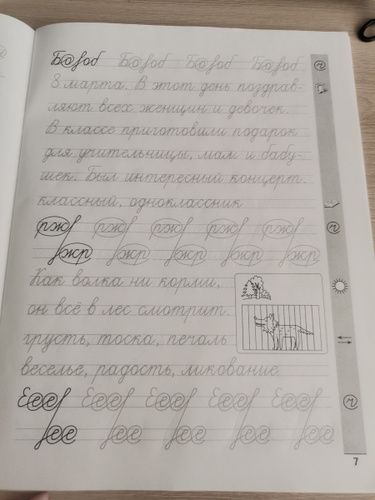 8 марта. В этот день поздрав-
ляют всех женщин и девочек.
В классе приготовили подарок
для учительницы, мам и бабу-
шек. Был интересный концерт.
классный, одноклассник
рж рж рж рж рж
жр жр жр жр жр
Как волка ни корми,
он всё в лес смотрит.
грусть, тоска, печаль
веселье, радость, ликование
7